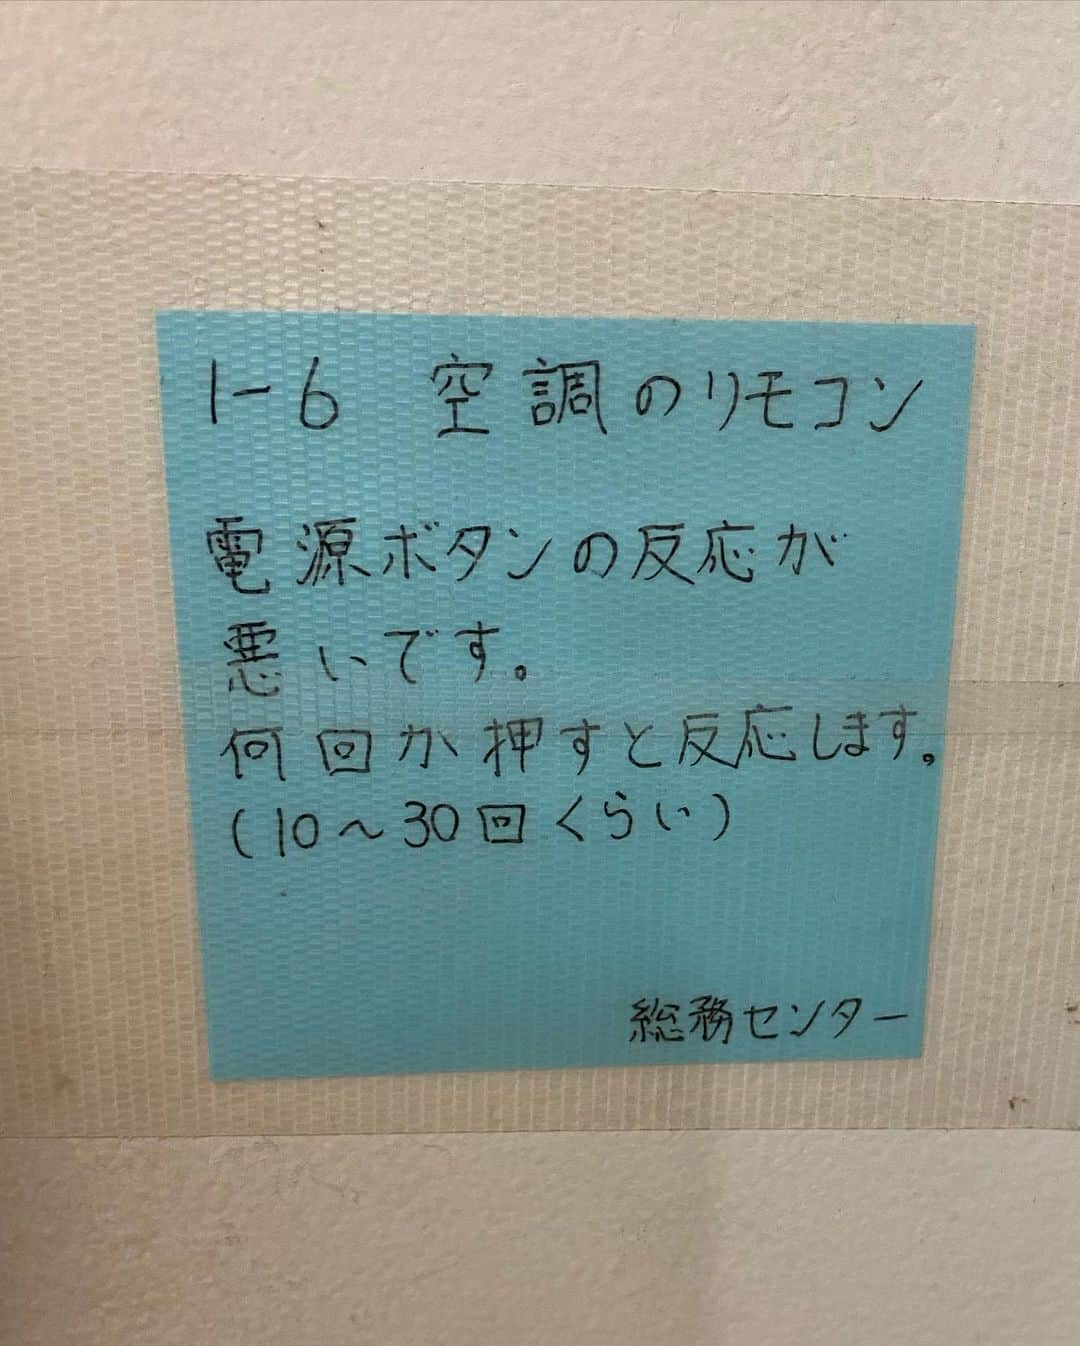 1-6 空調のリモコン
電源ボタンの反応が
悪いです。
何回か押すと反応します。
(10〜30回くらい)
総務センター